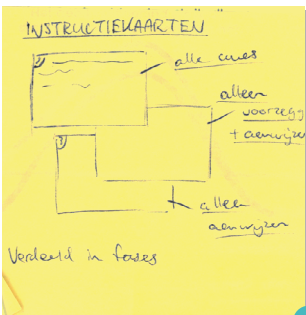 INSTRUCTIEKAARTEN
1
alle cues
alleen
voorzegg
+ aanwijze
?
alleen
aanwijzen
Verdeeld in fases